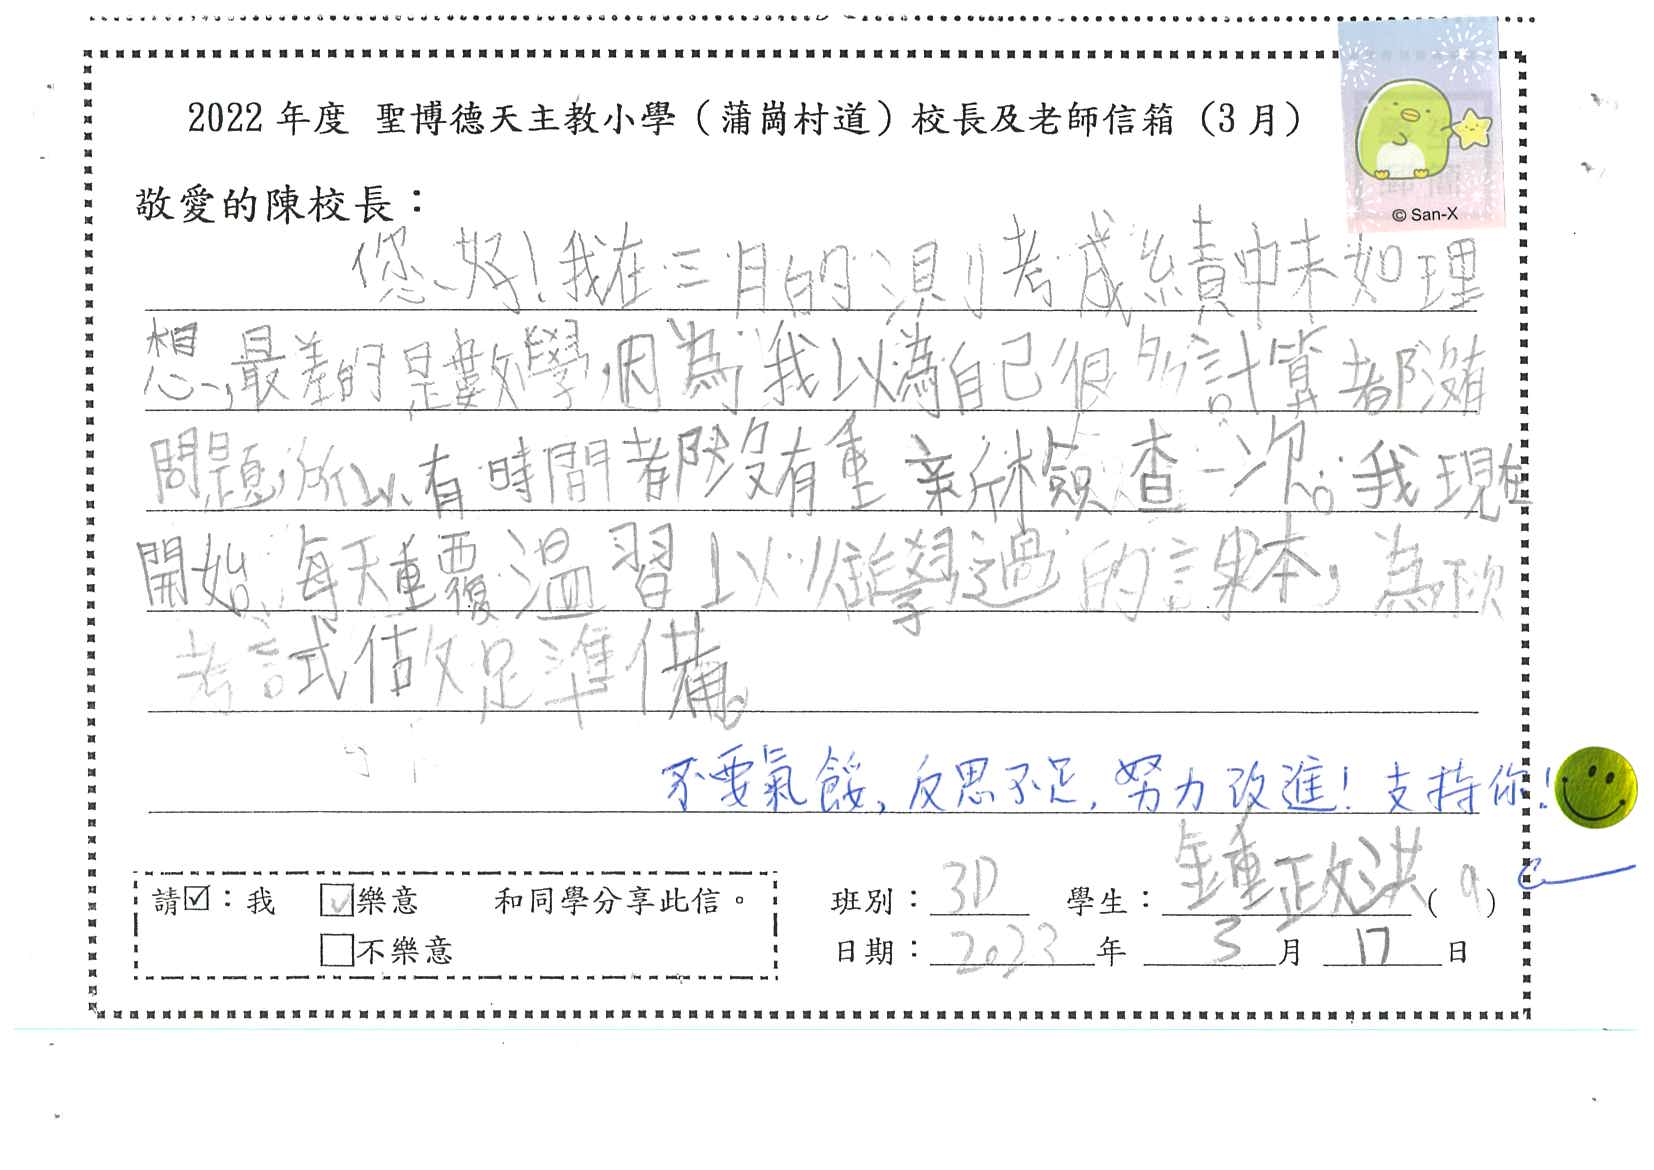 2022 年度 聖博德天主教小學（蒲崗村道）校長及老師信箱（3 月）
© San-X
敬愛的陳校長：
您好！我在三月的測考成績中未如理
想，最差的是數學，因為我以為自己很多計算都沒有
問題，所以有時間都沒有重新檢查一次。我現在
開始，每天重覆溫習以前學過的課本，為
考試做足準備。
不要氣餒，反思不足，努力改進！支持你！
請☑：我 ☑樂意 和同學分享此信。
□不樂意
班別：3D 學生：鍾政洪（9）
日期：2023年 3月 17日